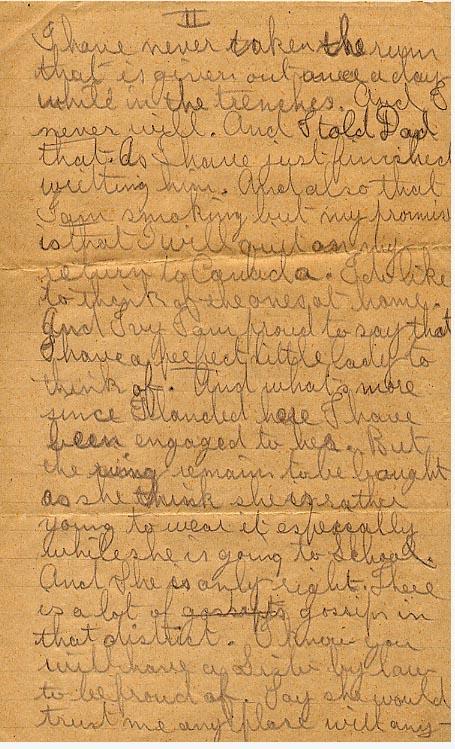 II
I have never taken the rum
that is given out once a day
while in the trenches. And I
never will. And I told Dad
that. As I have just finished
writting him. And also that
I am smoking but my promise
is that I will quit on my
return to Canada. I do like
to think of the ones at home.
And Ivy I am proud to say that
I have a perfect little lady to
think of. And what's more
since I landed here I have
been engaged to her. But
the ring remains to be bought
as she think she is rather
yong to wear it especally
while she is going to School.
And She is only right. There
is a lot of gossips in
that district. I know you
will have a Sister by law
to be proud of. Say she would
trust me any place with any-